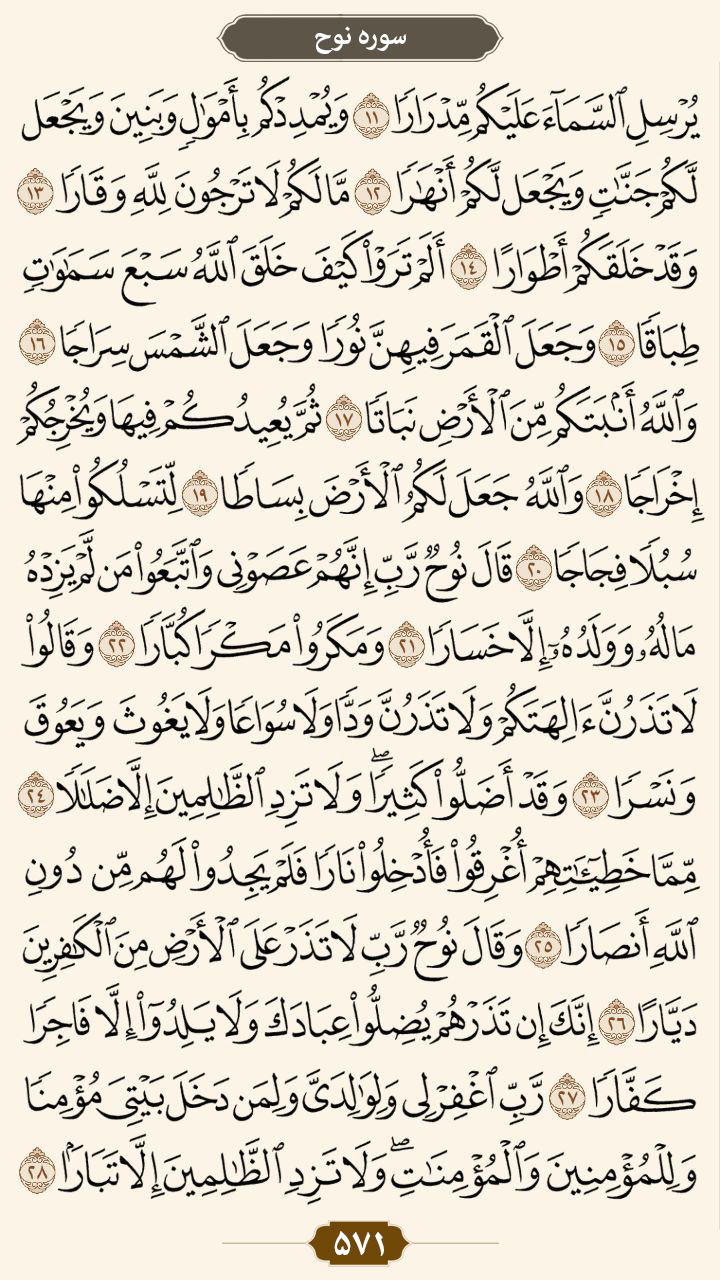 سوره نوح
يُرْسِلِ ٱلسَّمَآءَ عَلَيْكُم مِّدْرَارًا ١١ وَيُمْدِدْكُم بِأَمْوَٰلٍ وَبَنِينَ وَيَجْعَل
لَّكُمْ جَنَّٰتٍ وَيَجْعَل لَّكُمْ أَنْهَٰرًا ١٢ مَّا لَكُمْ لَا تَرْجُونَ لِلَّهِ وَقَارًا ١٣
وَقَدْ خَلَقَكُمْ أَطْوَارًا ١٤ أَلَمْ تَرَوْا۟ كَيْفَ خَلَقَ ٱللَّهُ سَبْعَ سَمَٰوَٰتٍ
طِبَاقًا ١٥ وَجَعَلَ ٱلْقَمَرَ فِيهِنَّ نُورًا وَجَعَلَ ٱلشَّمْسَ سِرَاجًا ١٦
وَٱللَّهُ أَنۢبَتَكُم مِّنَ ٱلْأَرْضِ نَبَاتًا ١٧ ثُمَّ يُعِيدُكُمْ فِيهَا وَيُخْرِجُكُمْ
إِخْرَاجًا ١٨ وَٱللَّهُ جَعَلَ لَكُمُ ٱلْأَرْضَ بِسَاطًا ١٩ لِّتَسْلُكُوا۟ مِنْهَا
سُبُلًا فِجَاجًا ٢٠ قَالَ نُوحٌ رَّبِّ إِنَّهُمْ عَصَوْنِى وَٱتَّبَعُوا۟ مَن لَّمْ يَزِدْهُ
مَالُهُۥ وَوَلَدُهُۥٓ إِلَّا خَسَارًا ٢١ وَمَكَرُوا۟ مَكْرًا كُبَّارًا ٢٢ وَقَالُوا۟
لَا تَذَرُنَّ ءَالِهَتَكُمْ وَلَا تَذَرُنَّ وَدًّا وَلَا سُوَاعًا وَلَا يَغُوثَ وَيَعُوقَ
وَنَسْرًا ٢٣ وَقَدْ أَضَلُّوا۟ كَثِيرًا ۖ وَلَا تَزِدِ ٱلظَّٰلِمِينَ إِلَّا ضَلَٰلًا ٢٤
مِّمَّا خَطِيٓـَٰٔتِهِمْ أُغْرِقُوا۟ فَأُدْخِلُوا۟ نَارًا فَلَمْ يَجِدُوا۟ لَهُم مِّن دُونِ
ٱللَّهِ أَنصَارًا ٢٥ وَقَالَ نُوحٌ رَّبِّ لَا تَذَرْ عَلَى ٱلْأَرْضِ مِنَ ٱلْكَٰفِرِينَ
دَيَّارًا ٢٦ إِنَّكَ إِن تَذَرْهُمْ يُضِلُّوا۟ عِبَادَكَ وَلَا يَلِدُوٓا۟ إِلَّا فَاجِرًا
كَفَّارًا ٢٧ رَّبِّ ٱغْفِرْ لِى وَلِوَٰلِدَىَّ وَلِمَن دَخَلَ بَيْتِىَ مُؤْمِنًا
وَلِلْمُؤْمِنِينَ وَٱلْمُؤْمِنَٰتِ ۖ وَلَا تَزِدِ ٱلظَّٰلِمِينَ إِلَّا تَبَارًۢا ٢٨
۵۷۱